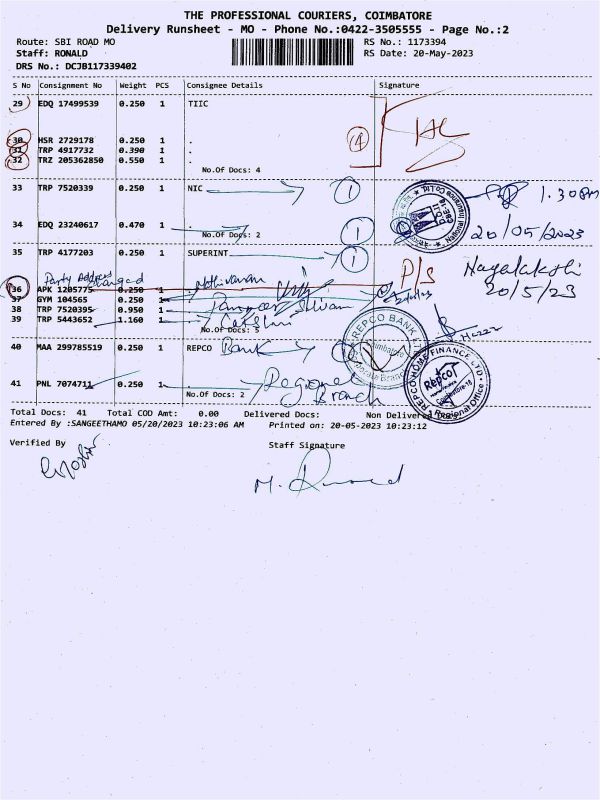 THE PROFESSIONAL COURIERS, COIMBATORE
Delivery Runsheet - MO - Phone No.:0422-3505555 - Page No.:2
Route: SBI ROAD MO
RS No.: 1173394
Staff: RONALD
RS Date: 20-May-2023
DRS No.: DCJB117339402
S No Consignment No Weight PCS Consignee Details Signature
29 EDQ 17499539 0.250 1 TIIC
30 MSR 2729178 0.250 1 .
31 TRP 4917732 0.390 1 .
32 TRZ 205362850 0.550 1 .
No.Of Docs: 4
4
33 TRP 7520339 0.250 1 NIC 1 1.30PM
34 EDQ 23240617 0.470 1 . 1 20/05/2023
No.Of Docs: 2
35 TRP 4177203 0.250 1 SUPERINT 1
Party Address changed
P/s
20/5/23
36 APK 1205775 0.250 1 .
37 GYM 104565 0.250 1
38 TRP 7520395 0.950 1
39 TRP 5443652 1.160 1
No.Of Docs: 5
REPCO BANK
Coimbatore
40 MAA 299785519 0.250 1 REPCO Bank
41 PNL 7074711 0.250 1 . Regional Branch
No.Of Docs: 2
REPCO HOME FINANCE LTD.
Repco
Regional Office
Total Docs: 41 Total COD Amt: 0.00 Delivered Docs: Non Delivered Docs:
Entered By :SANGEETHAMO 05/20/2023 10:23:06 AM Printed on: 20-05-2023 10:23:12
Verified By Staff Signature